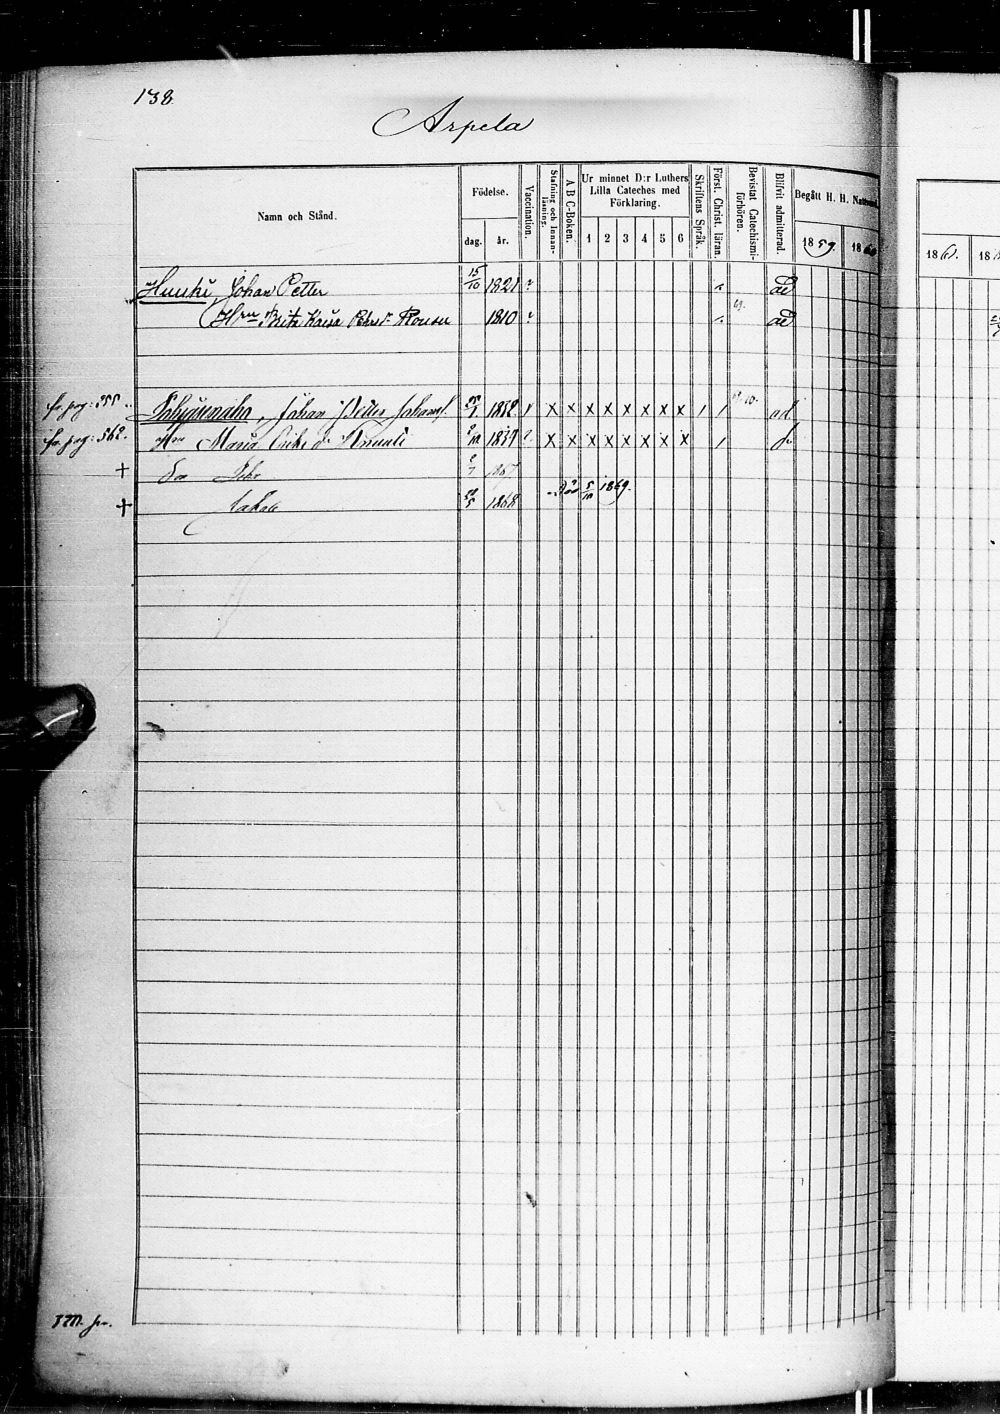 138.
Arpela
Namn och Stånd.
Födelse.
dag. år.
Vaccination.
Stafning och Innanläsning.
A B C-Boken.
Ur minnet D:r Luthers Lilla Cateches med Förklaring.
1 2 3 4 5 6
Skriftens Språk.
Först. Christ. läran.
Bevistat Catechismiförhören.
Blifvit admitterad.
Begått H. H. Nattvard.
1859. 1860
1861. 18
Huuki Johan Petter 15/10 1821 ? ad
Hru Brita Kaisa Rousu 1810 ? ad
fr. pag: 355 Johan Petter Johans. 25/1 1832 1 X X X X X X X X 1 1 ad.
fr. pag: 562. Hru Maria d:r 1839 ? X X X X X X X X 1
+ Son 1867
+ Jakob 1868 Död 5/10 1869.